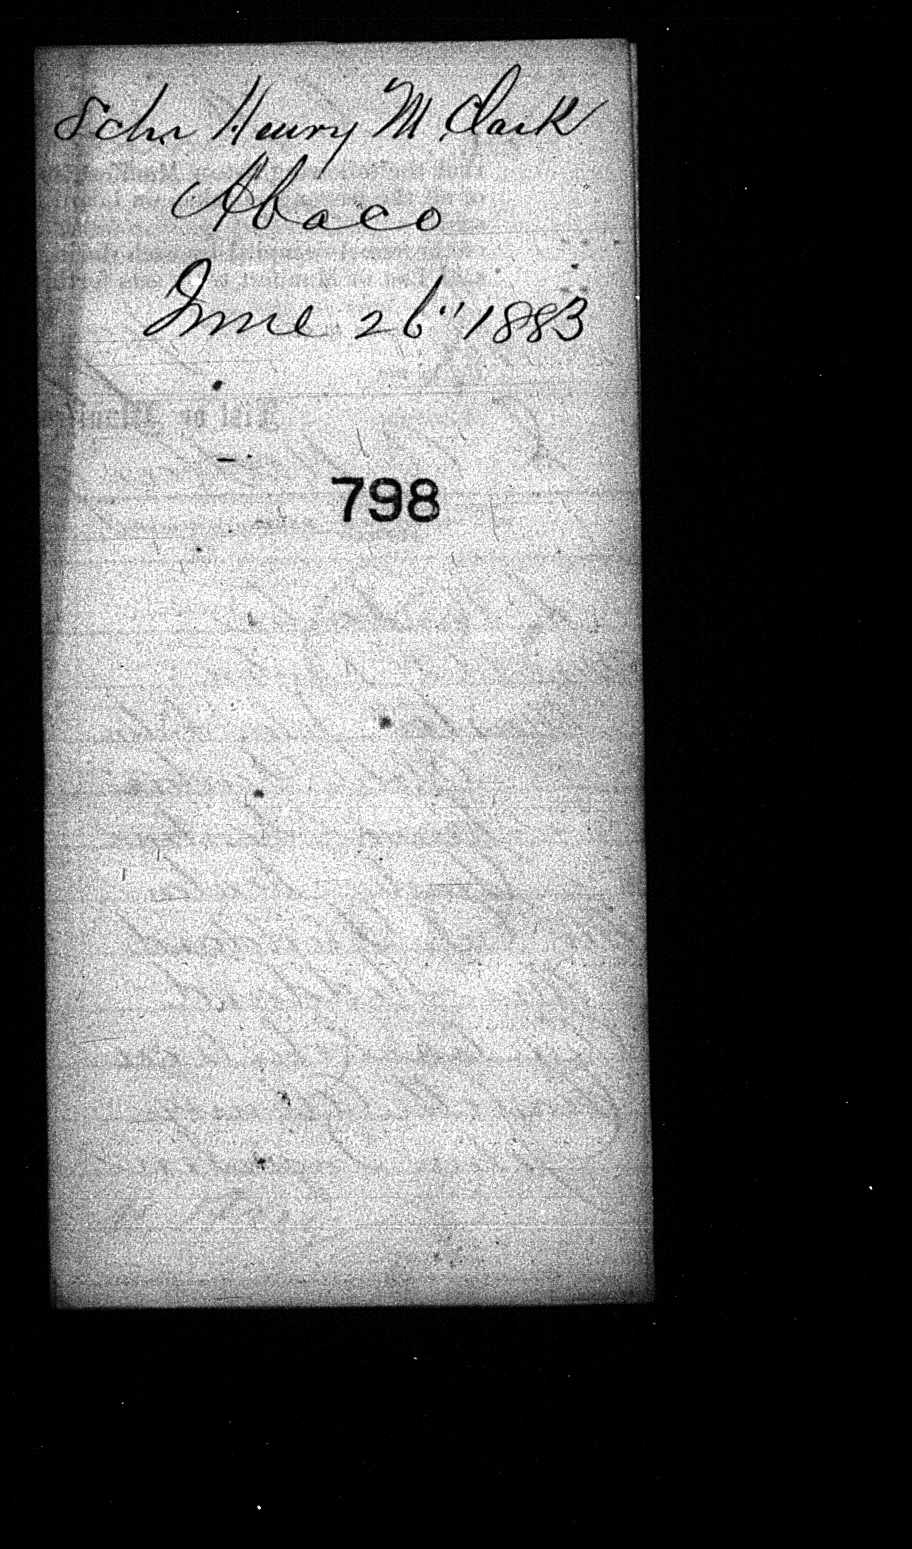 Schr Henry M Clark
Abaco
June 26" 1883
798